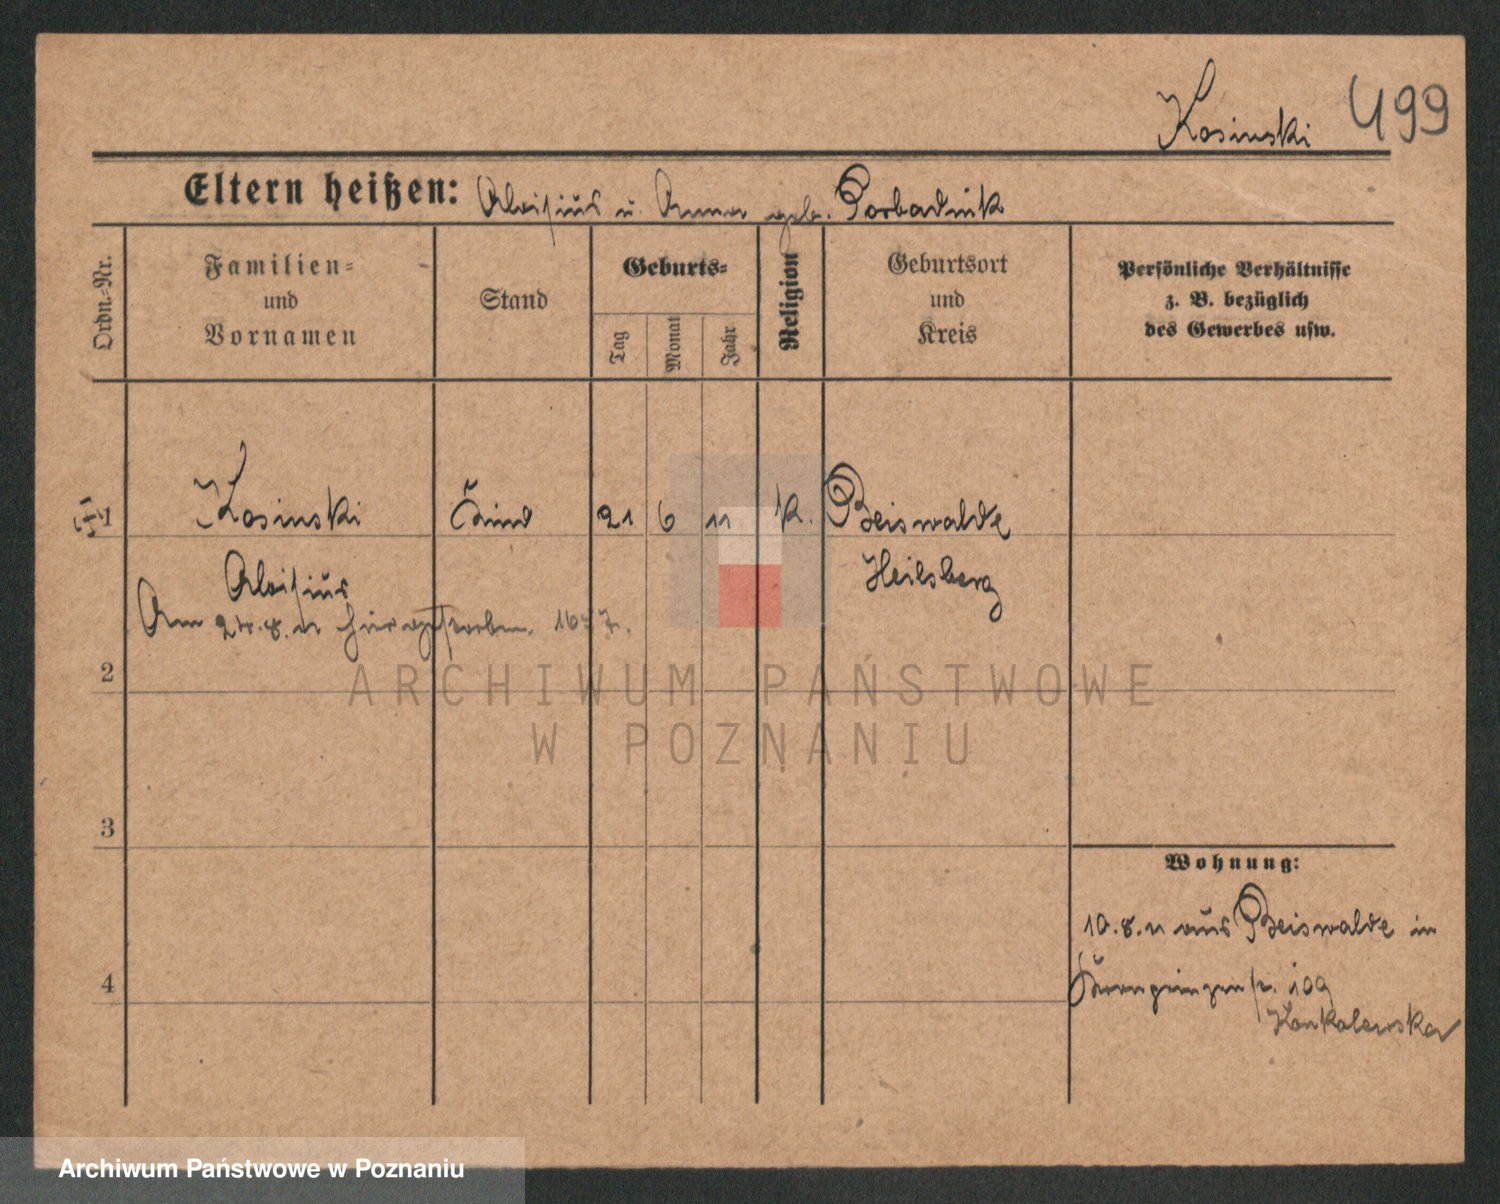 Kosinski 499
Eltern heißen: Aloisius u. Anna geb. Porbadnik
Ordn.-Nr.
Familien-
und
Vornamen
Stand
Geburts-
Tag
Monat
Jahr
Religion
Geburtsort
und
Kreis
Persönliche Verhältnisse
z. B. bezüglich
des Gewerbes usw.
1 Kosinski Kind 21 6 11 k. Beiswalde
Aloisius Heilsberg
Am 24.8.11 hier gestorben.
2
ARCHIWUM PAŃSTWOWE
W POZNANIU
3
Wohnung:
10.8.11 aus Beiswalde in
Kronprinzenstr. 109
4
Archiwum Państwowe w Poznaniu